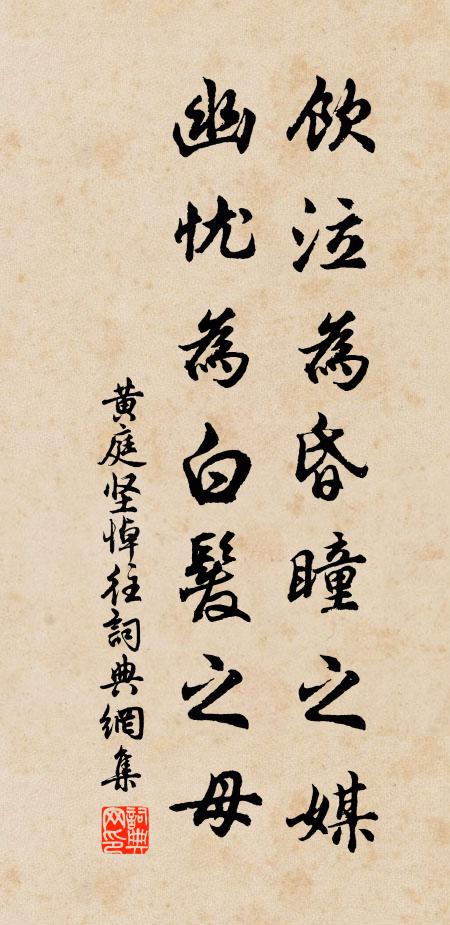 飲泣為昏瞳之媒
幽忧為白髮之母
黄庭坚悼往詞典網集
詞典网印